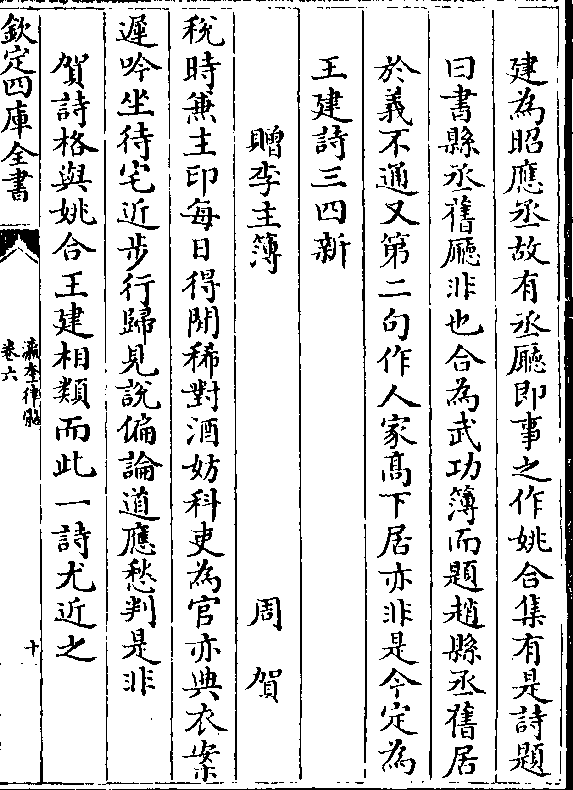 建為昭應丞故有丞廳即事之作姚合集有是詩題
曰書縣丞舊廳非也合為武功簿而題趙縣丞舊居
於義不通又第二句作人家高下居亦非是今定為
王建詩三四新
贈李主簿　周賀
稅時兼主印每日得閒稀對酒妨科吏為官亦典衣案
遲吟坐待宅近步行歸見說偏論道應愁判是非
賀詩格與姚合王建相類而此一詩尤近之
欽定四庫全書
瀛奎律髓
卷六
十